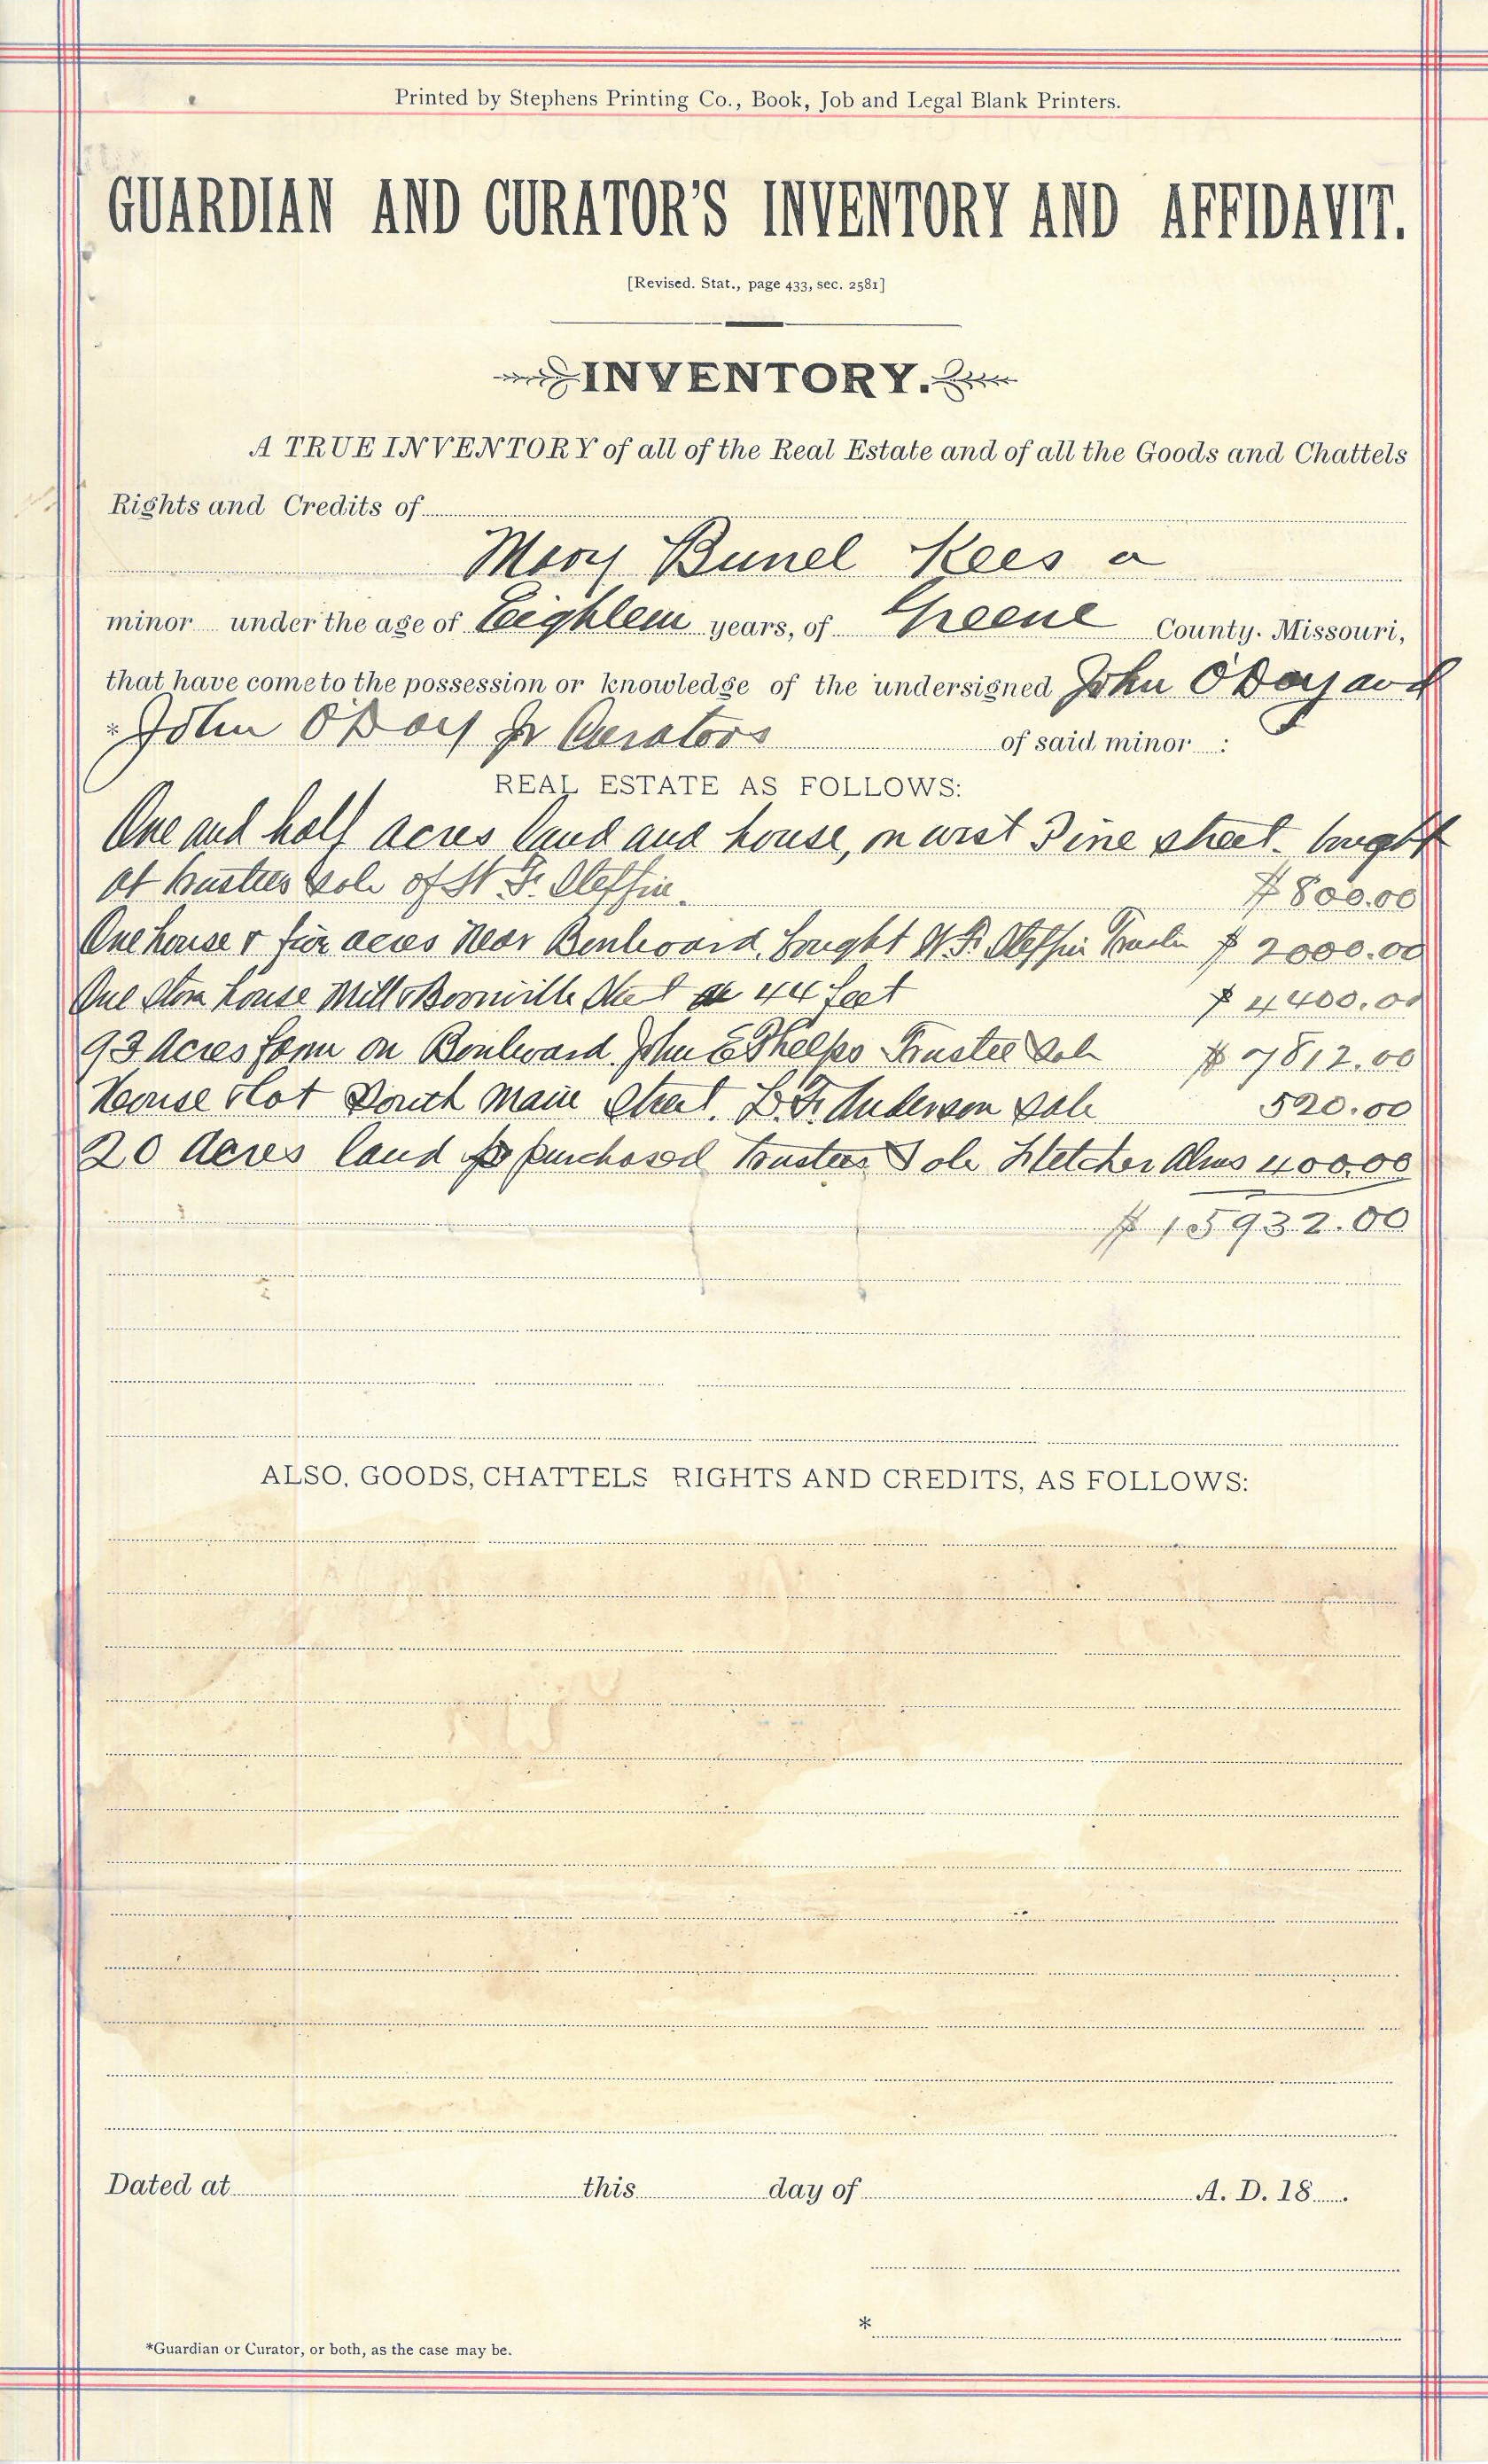 Printed by Stephens Printing Co., Book, Job and Legal Blank Printers.
GUARDIAN AND CURATOR'S INVENTORY AND AFFIDAVIT.
[Revised. Stat., page 433, sec. 2581]
INVENTORY.
A TRUE INVENTORY of all of the Real Estate and of all the Goods and Chattels
Rights and Credits of
Mary Bunel Kees a
minor under the age of Eighteen years, of Greene County. Missouri,
that have come to the possession or knowledge of the undersigned John O'Day and
* John O'Day Jr Curators of said minor :
REAL ESTATE AS FOLLOWS:
One and half acres land and house, on west Pine street. bought
at trustees sale of W. F. Steffin. $800.00
One house & five acres near Boulevard, bought W. F. Steffin Trustee $ 2000.00
One Store house Mill & Boonville Street 44 feet $ 4400.00
93 Acres farm on Boulevard. John E Phelps Trustee Sale $ 7812.00
House & Lot South Main Street. L. F. Anderson sale 520.00
20 acres land purchased Trustees Sale Fletcher Alms 400.00
$ 15932.00
ALSO, GOODS, CHATTELS RIGHTS AND CREDITS, AS FOLLOWS:
Dated at this day of A. D. 18 .
*
*Guardian or Curator, or both, as the case may be.